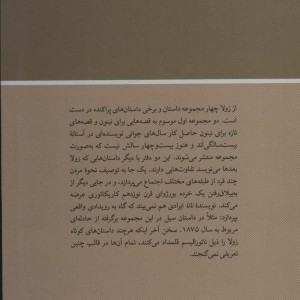 از زولا چهار مجموعه داستان و برخی داستان‌های پراکنده در دست
است. دو مجموعه اول موسوم به قصه‌هایی برای نینون و قصه‌های
تازه برای نینون حاصل کار سال‌های جوانی نویسنده‌ای در آستانهٔ
بیست‌سالگی‌اند و هنوز بیست‌وچهار سالش نیست که به‌صورت
مجموعه منتشر می‌شوند. این دو دفتر با دیگر داستان‌هایی که زولا
بعدها می‌نویسد تفاوت‌هایی دارند. یک جا به توصیف نحوهٔ مردن
چند فرد از طبقه‌های مختلف اجتماع می‌پردازند، و در جایی دیگر از
یک خرده بورژوای قرن نوزدهم کاریکاتوری عرضه
می‌کنند ایرادی هم نمی‌بیند که گاه به رویدادی واقعی
بپردازد: مثلاً در داستان سیل در این مجموعه برگرفته از حادثه‌ای
مربوط به سال ۱۸۷۵. سخن آخر اینکه هرچند داستان‌های کوتاه
زولا را ذیل ناتورالیسم قلمداد می‌کنند، تمام آن‌ها در قالب چنین
تعریفی نمی‌گنجند.